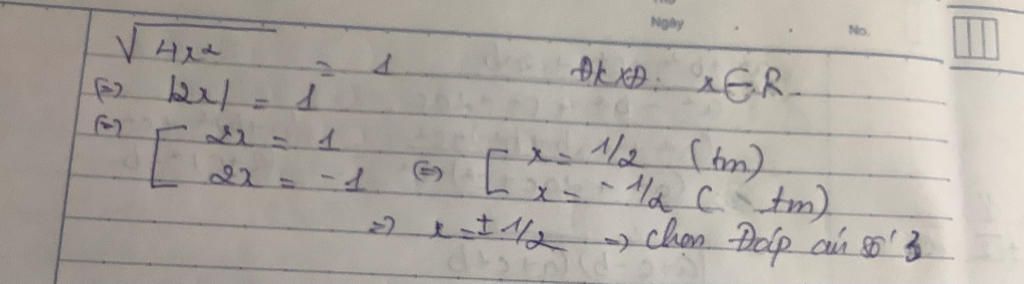 Ngày . . No.
√4x² = 1 ĐKXĐ: x ∈ R
(=) |2x| = 1
(=) [ 2x = 1 (=) [ x = 1/2 (tm)
2x = -1 x = -1/2 ( tm)
=> x = ± 1/2 => chọn Đáp án số 3